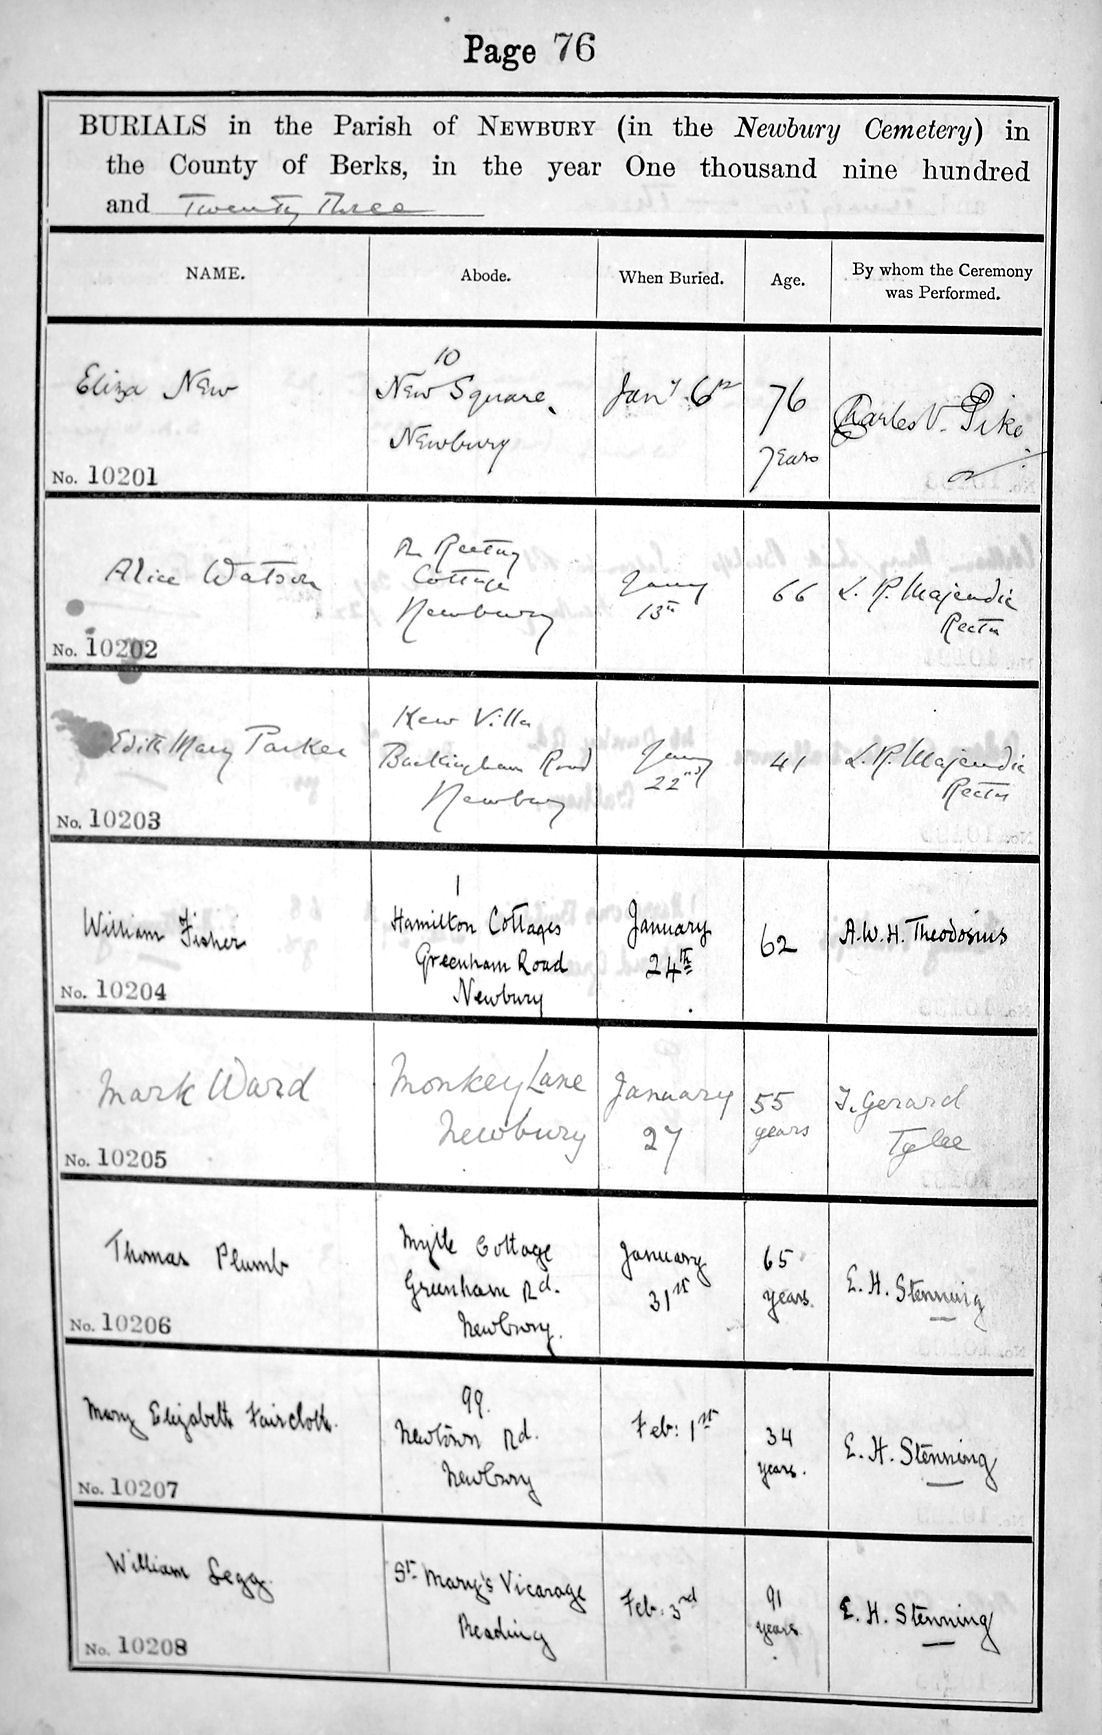 Page 76
BURIALS in the Parish of NEWBURY (in the Newbury Cemetery) in
the County of Berks, in the year One thousand nine hundred
and Twenty Three
NAME.
Abode.
When Buried.
Age.
By whom the Ceremony
was Performed.
Eliza New
No. 10201
10
New Square,
Newbury
Jany 6th
76
years
Charles V. Pike
Alice Watson
No. 10202
The Rectory
Cottage
Newbury
Jany
13th
66
L. R. Majendie
Rector
Edith Mary Parker
No. 10203
Kew Villa
Buckingham Road
Newbury
Jany
22nd
41
L. R. Majendie
Rector
William Fisher
No. 10204
1
Hamilton Cottages
Greenham Road
Newbury
January
24th
62
A. W. H. Theodosius
Mark Ward
No. 10205
Monkey Lane
Newbury
January
27
55
years
T. Gerard
Tylee
Thomas Plumb
No. 10206
Myrtle Cottage
Greenham Rd.
Newbury.
January
31st
65
years.
E. H. Stenning
Mary Elizabeth Faircloth.
No. 10207
99.
Newtown Rd.
Newbury
Feb: 1st
34
years.
E. H. Stenning
William Legg.
No. 10208
St Mary's Vicarage
Reading
Feb. 3rd
91
years
E. H. Stenning